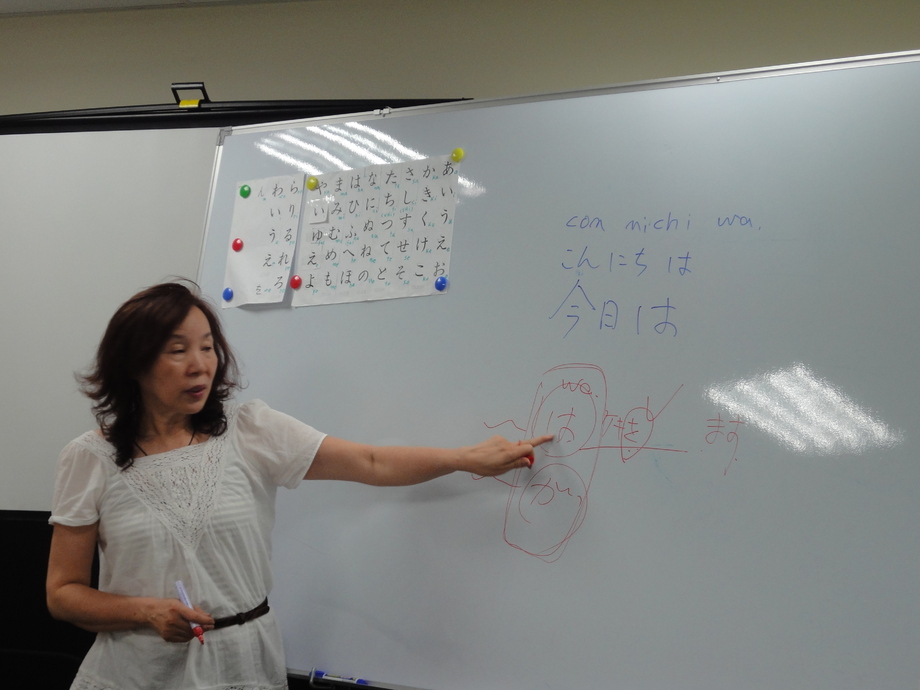 らりるれろ
わいうえを
ん
あいうえお
かきくけこ
さしすせそ
たちつてと
なにぬねの
はひふへほ
まみむめも
やいゆえよ
con nichi wa.
こんにちは
今日は
wa.
は
が
ます